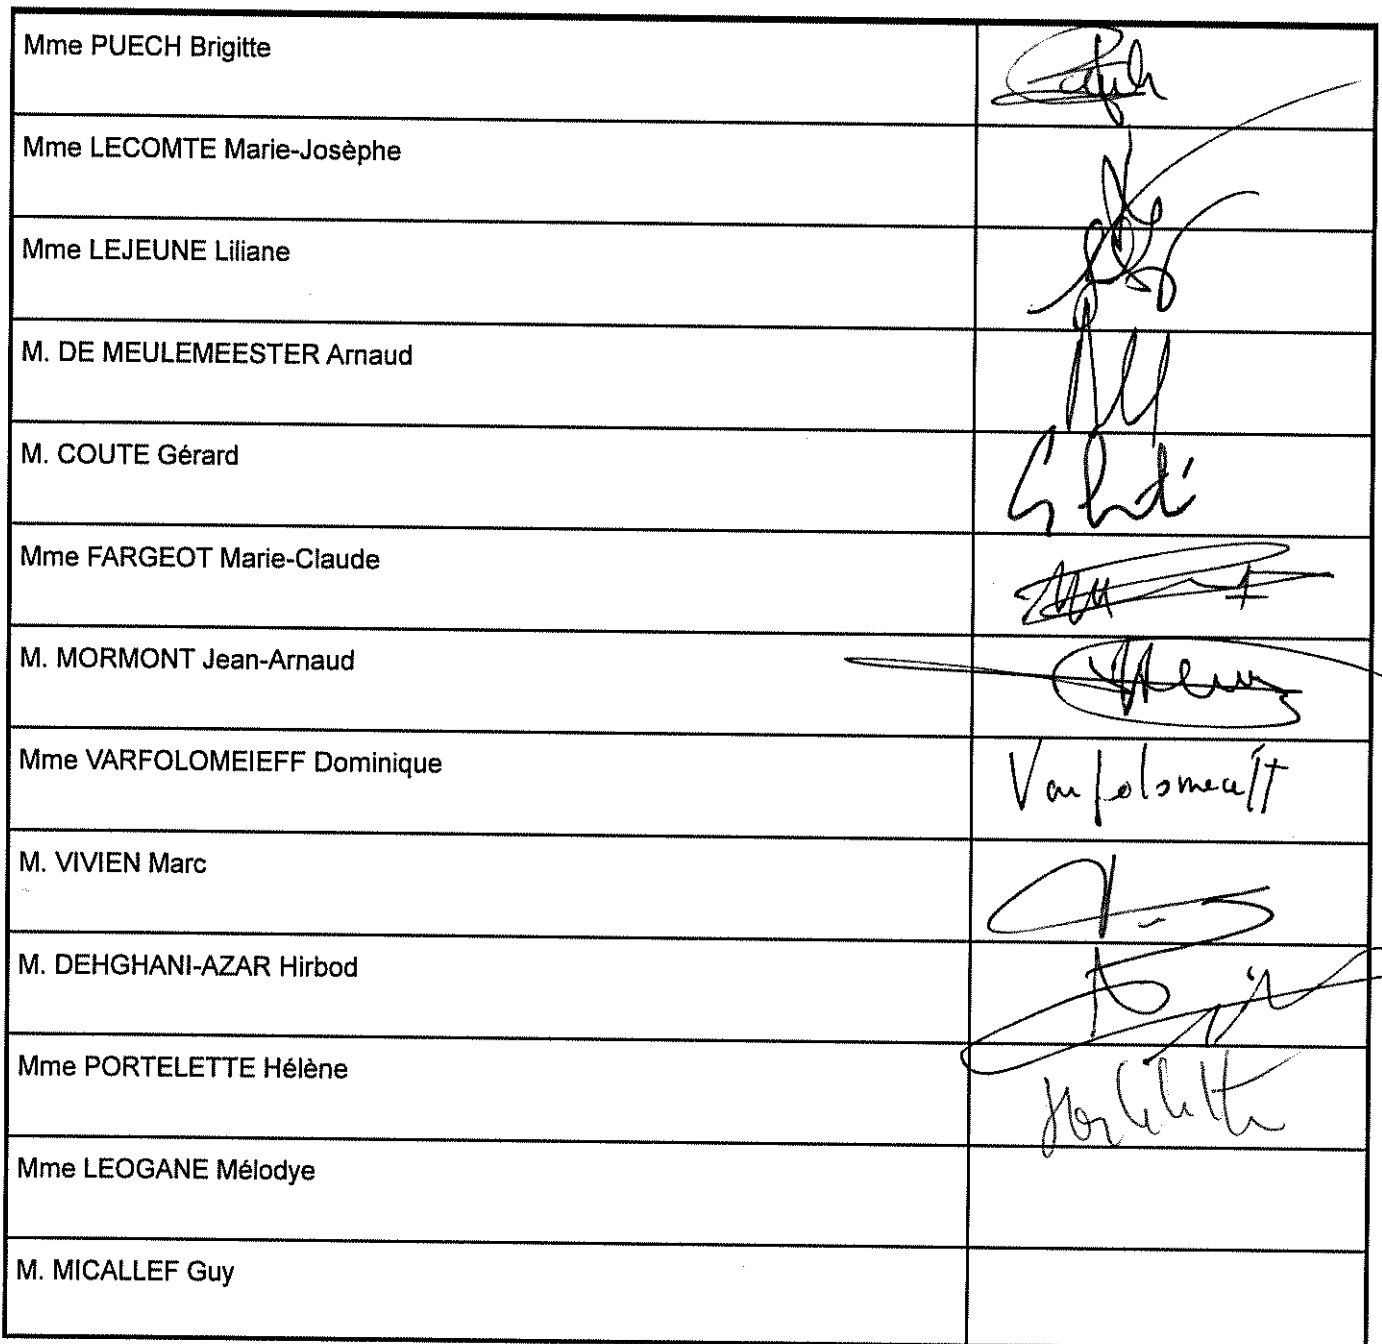 Mme PUECH Brigitte
Mme LECOMTE Marie-Josèphe
Mme LEJEUNE Liliane
M. DE MEULEMEESTER Arnaud
M. COUTE Gérard
Mme FARGEOT Marie-Claude
M. MORMONT Jean-Arnaud
Mme VARFOLOMEIEFF Dominique
M. VIVIEN Marc
M. DEHGHANI-AZAR Hirbod
Mme PORTELETTE Hélène
Mme LEOGANE Mélodye
M. MICALLEF Guy